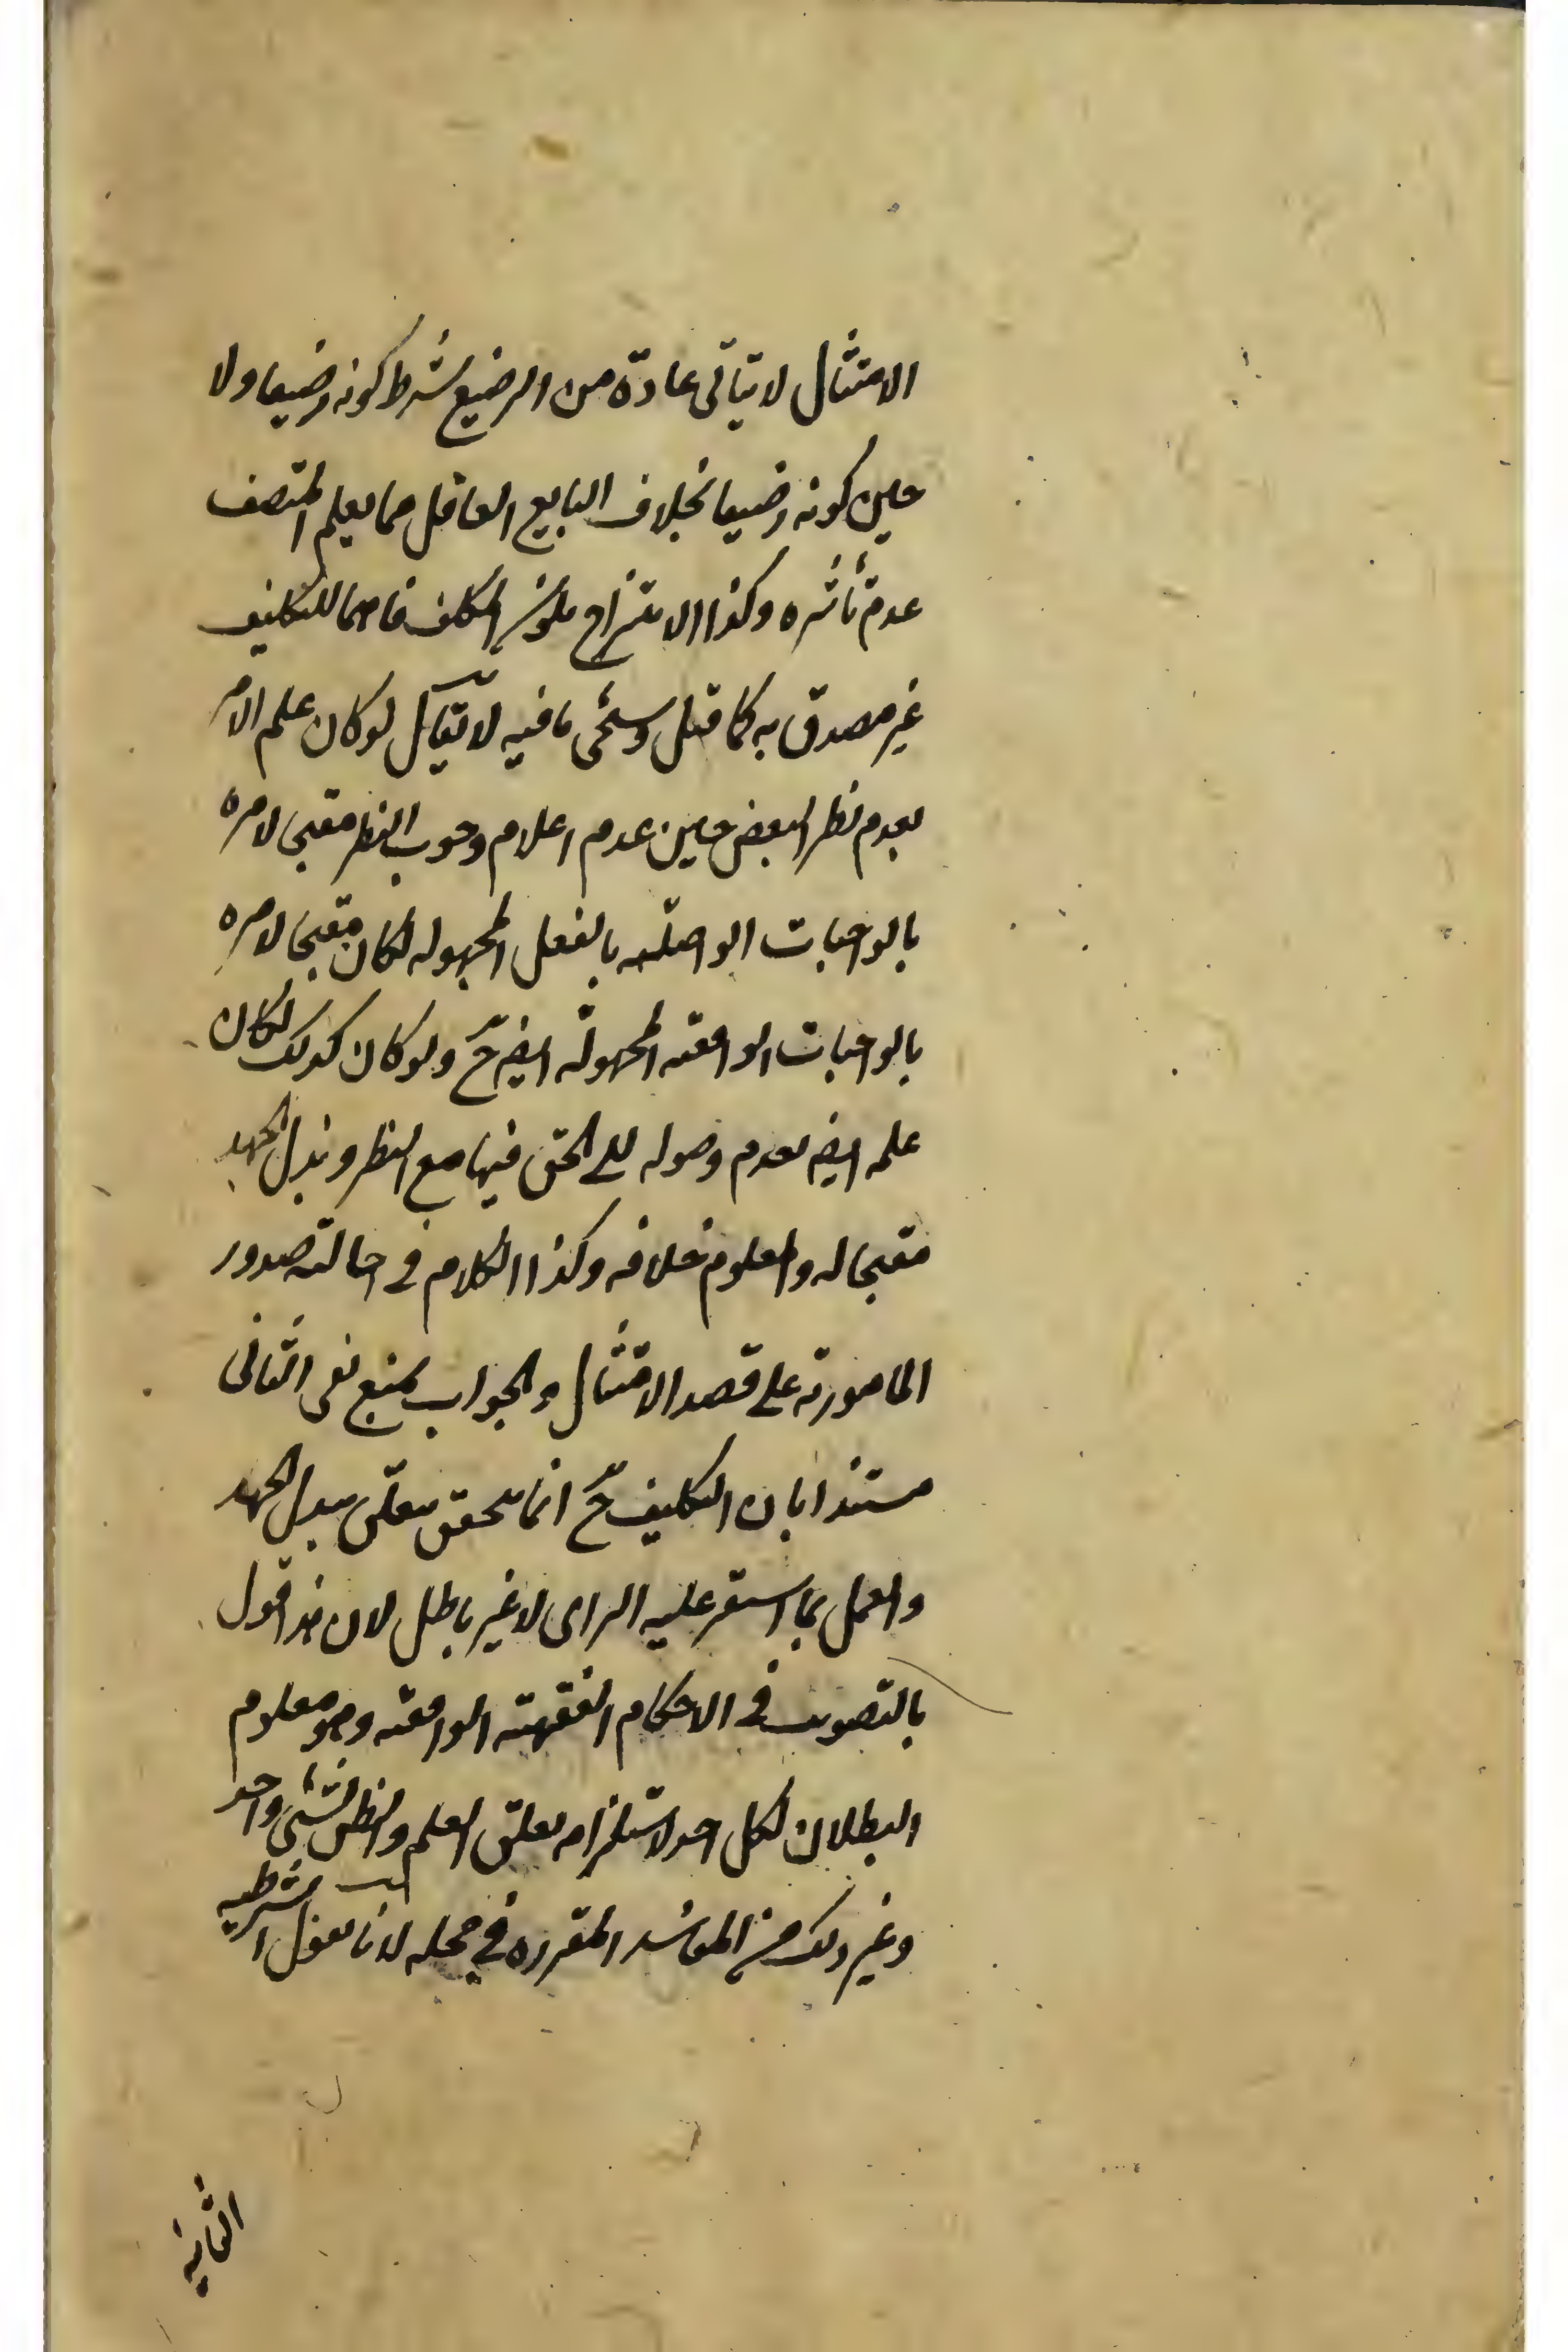 الامتثال لا يتأتى عادة من الرضيع بشرط كونه رضيعا ولا
حين كونه رضيعا بخلاف البالغ العاقل مما يعلم المتصف
عدم تأثره وكذا الامتزاج بكون المكلف فاهما للتكليف
غير مصدق به كما قيل وسيجئ ما فيه لا يقال لو كان علم الآمر
بعدم نظر البعض حين عدم اعلام وجوب النظر مقبحا لامره
بالواجبات الواصلية بالفعل المجهولة لكان مقبحا لامره
بالواجبات الواقعية المجهولة ايض ح ولو كان كذلك لكان
علمه ايض بعدم وصوله الى الحق فيها مع النظر وبذل الجهد
مقبحا له والمعلوم خلافه وكذا الكلام في احالته صدور
المامور به على قصد الامتثال والجواب بمنع نفى الثانى
مستندا بان التكليف ح انما يتحقق متعلق ببذل الجهد
والعمل بما استقر عليه الراى لا غير باطل لان هذا قول
بالتصويب في الاحكام الفقهية الواقعية وهو معلوم
البطلان لكل احد لاستلزامه تعلق العلم والظن بشئ واحد
وغير ذلك من المفاسد المقررة في محله لانا نقول الشرطية
الثانية